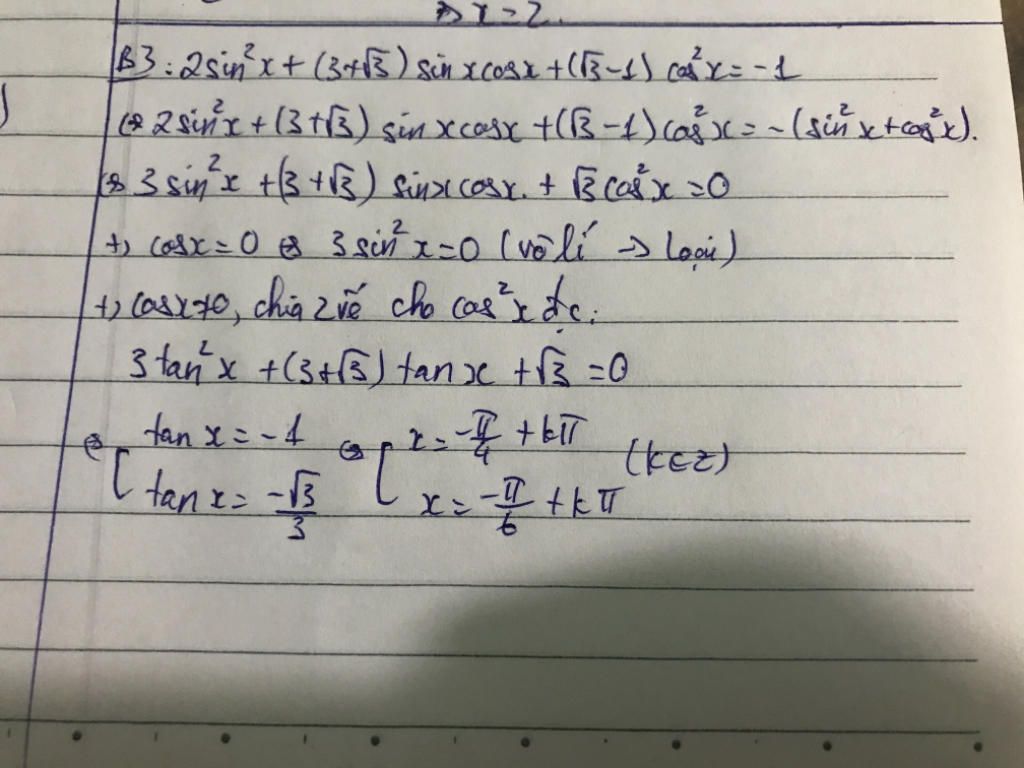 => x = 2.
B3: 2sin²x + (3+√3) sinxcosx + (√3-1) cos²x = -1
<=> 2sin²x + (3+√3) sinxcosx + (√3-1) cos²x = -(sin²x+cos²x).
<=> 3sin²x + (3+√3) sinxcosx. + √3cos²x = 0
+) cosx = 0 <=> 3sin²x = 0 (vô lí -> loại)
+) cosx ≠ 0, chia 2 vế cho cos²x đc:
3tan²x + (3+√3) tanx + √3 = 0
<=> [ tanx = -1 <=> [ x = -π/4 + kπ (k∈Z)
tanx = -√3/3 x = -π/6 + kπ